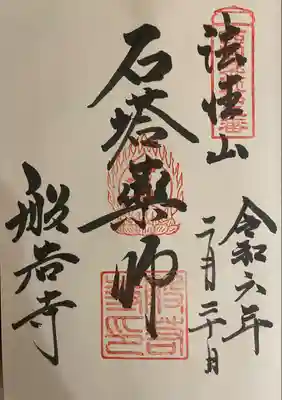 法性山
令和六年
二月二十日
石塔薬師
般若寺